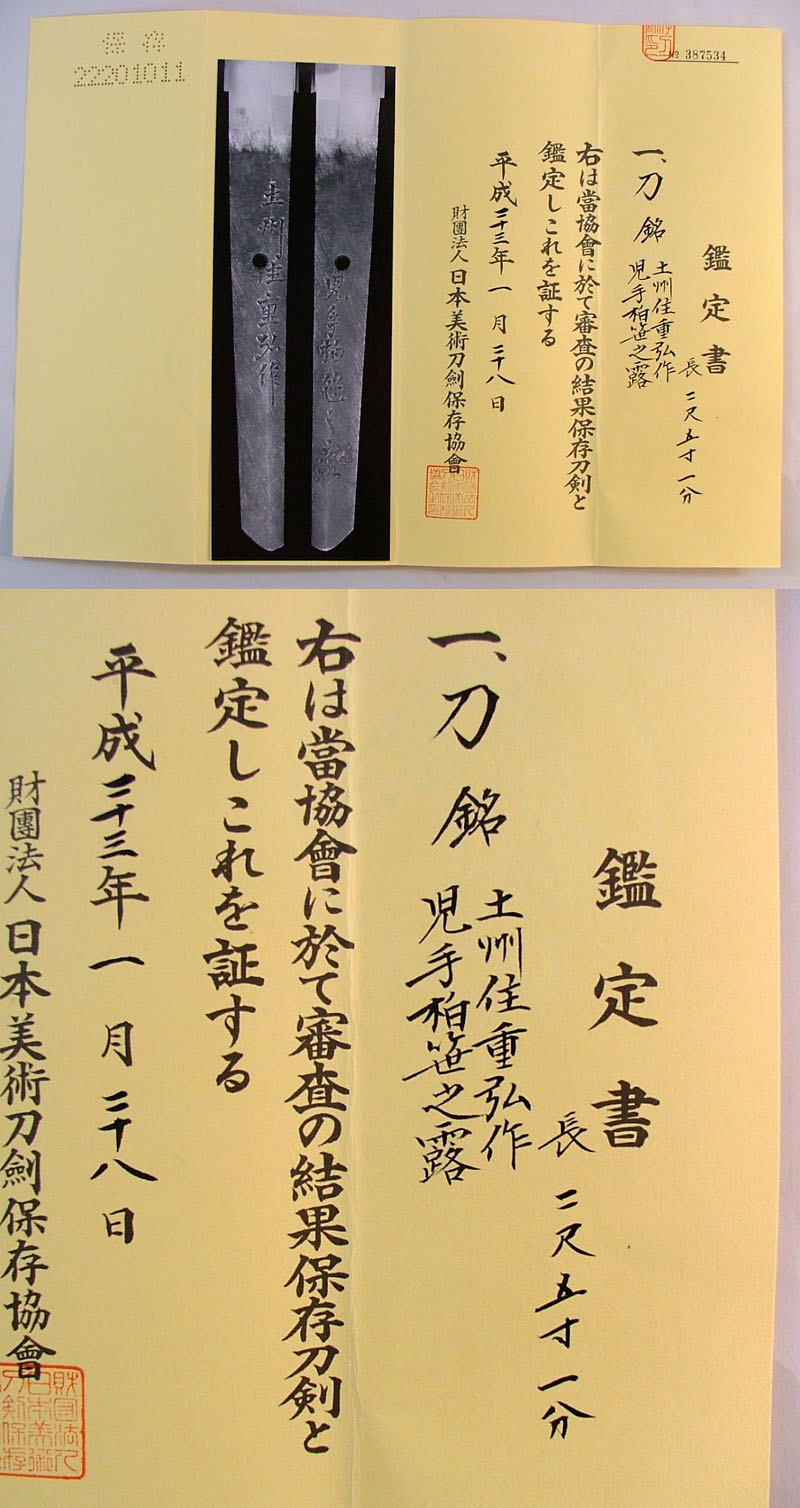 保存
22201011
土州住重弘作
児手柏笹之露
№ 387534
鑑定書
一、刀 銘 土州住重弘作
児手柏笹之露
長 二尺五寸一分
右は當協會に於て審査の結果保存刀剣と
鑑定しこれを証する
平成二十三年一月二十八日
財團法人日本美術刀劍保存協會
鑑定書
一、刀 銘 土州住重弘作
児手柏笹之露
長 二尺五寸一分
右は當協會に於て審査の結果保存刀剣と
鑑定しこれを証する
平成二十三年一月二十八日
財團法人日本美術刀劍保存協會